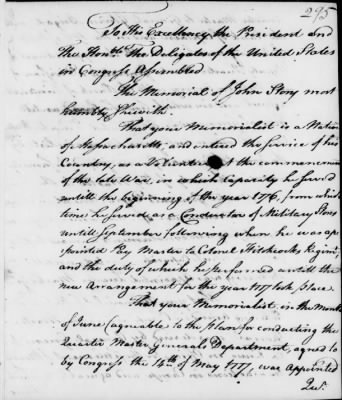 295
To His Excellency the President and
The Honble. The Delegates of the United States
in Congress Assembled.
The Memorial of John Story most
humbly Sheweth.
That your Memorialist is a Native
of Massachusetts, and entered the Service of his
Country, as a Volunteer at the commencement
of the late War, in which Capacity he served
untill the beginning of the year 1776, from which
time he served as a Conductor of Military Stores
untill September following when he was ap-
pointed Pay Master to Colonel Hitchcocks Regimt,
and the duty of which he performed untill the
new Arrangement for the year 1777 took place.
That your Memorialist, in the Month
of June (agreeable to the plan for conducting the
Quarter Master Generals Department, agreed to
by Congress the 14th of May 1777, was appointed